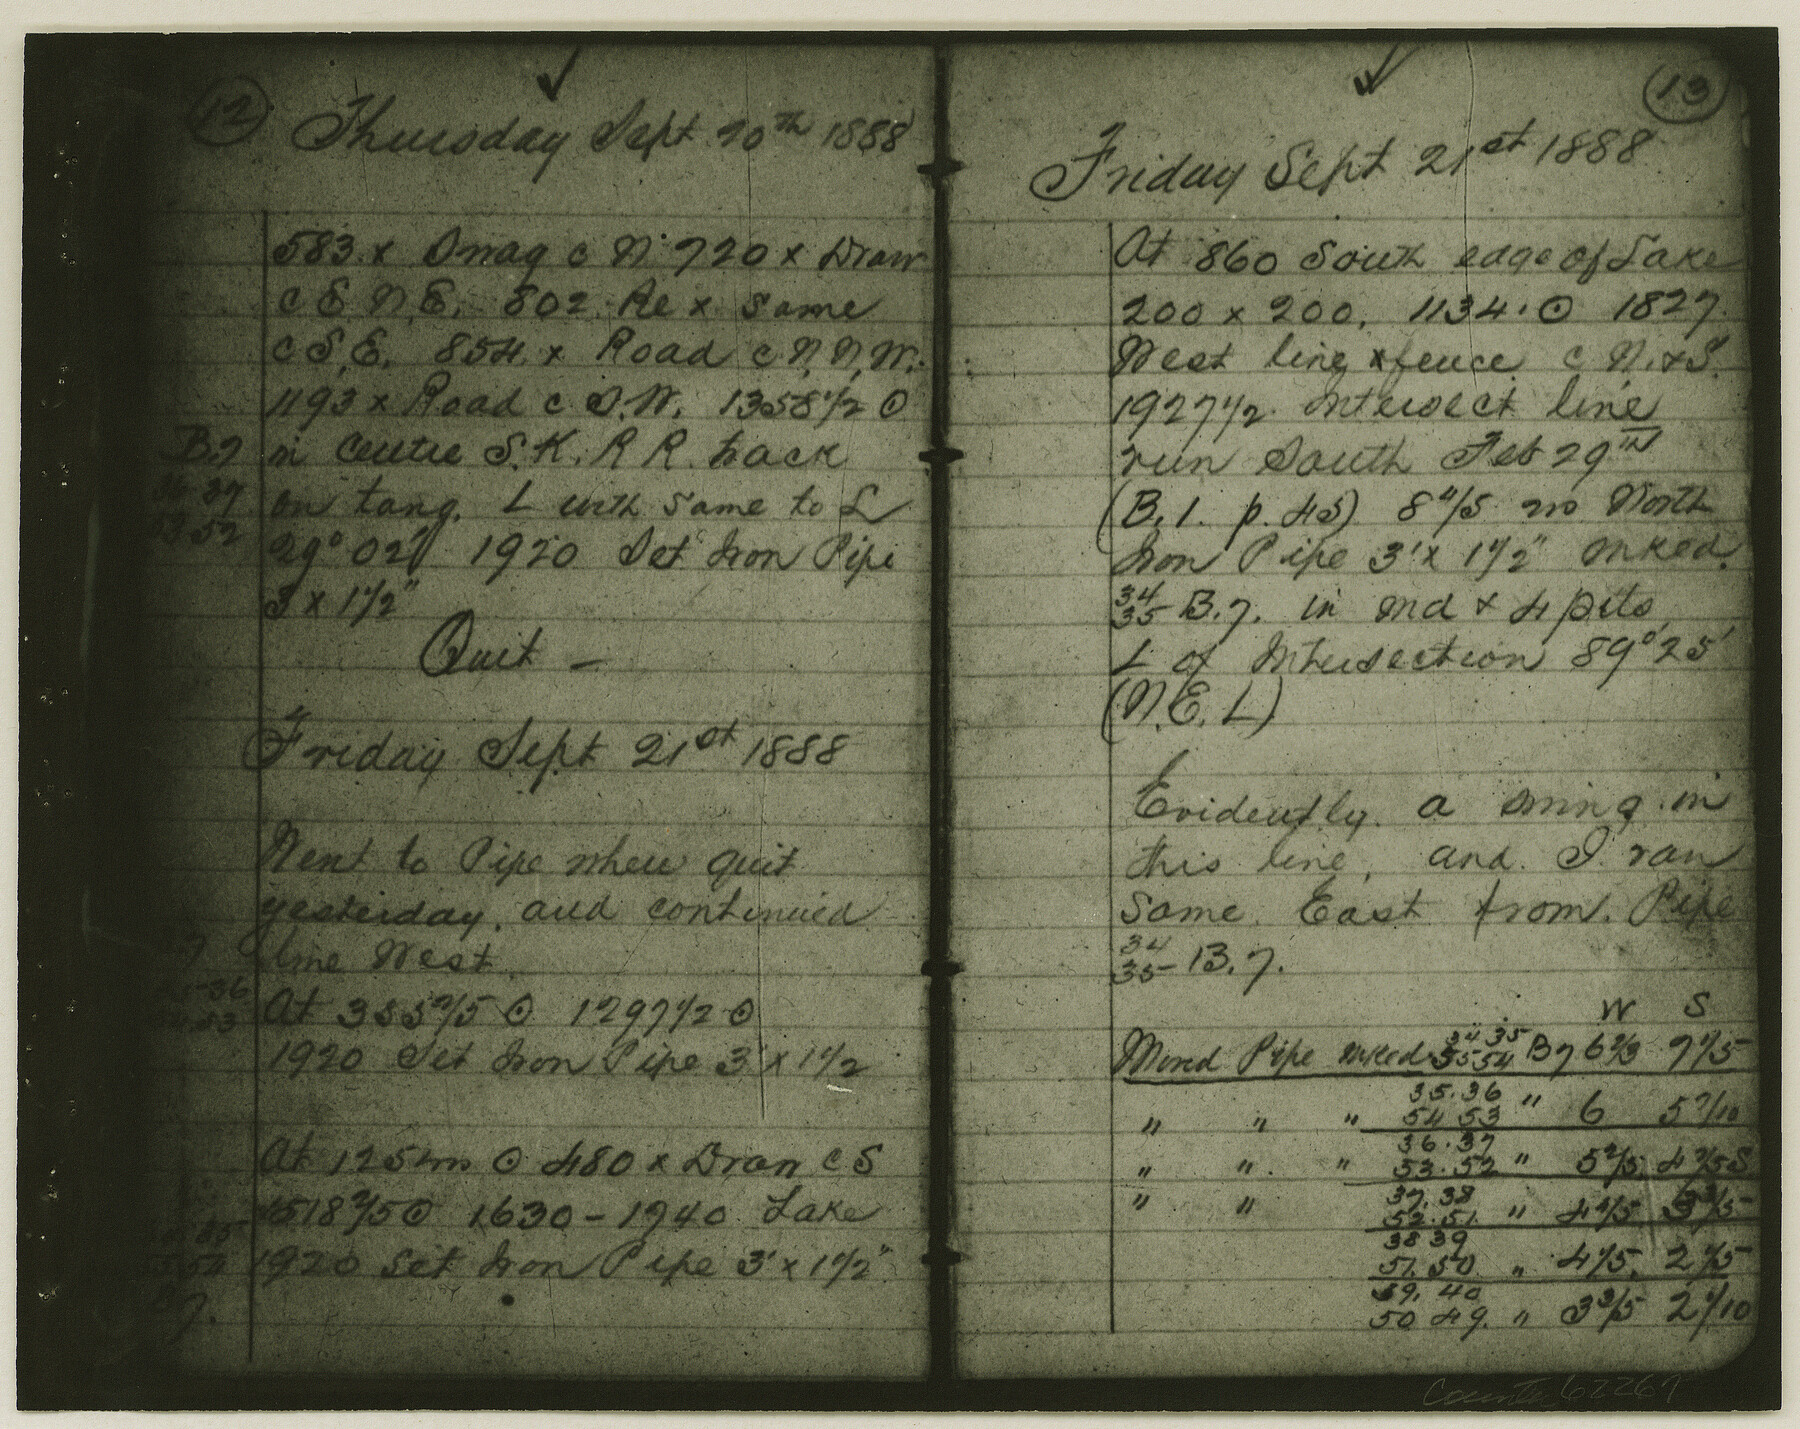 12
Thursday Sept 20th 1888
583 x Dwag c N. 720 x Draw
c E N. E. 802 Re x same
c S. E. 854 x Road c N. N. W.
1193 x Road c S. W. 1358 1/2 ⊙
B.7 in centre S. K. R R. track
36 37 on tang. L with same to L
53 52 29° 02' 1920 Set Iron Pipe
3 x 1 1/2"
Quit —
Friday Sept 21st 1888
Went to Pipe where quit
yesterday, and continued
7 line West.
At 355 2/5 ⊙ 1297 1/2 ⊙
1920 Set Iron Pipe 3' x 1 1/2
At 125 ⊙ 480 x Draw c S
1518 2/5 ⊙ 1630 – 1740 Lake
1920 Set Iron Pipe 3' x 1 1/2"
7.
13
Friday Sept 21st 1888
At 860 South edge of Lake
200 x 200. 1134. ⊙ 1827.
West line x fence c N. & S.
1927 1/2 Intersect line
run South Feb 29th
(B. 1. p. 45) 8 4/5 vs North
Iron Pipe 3' x 1 1/2" mked.
34
35 B. 7. in md & 4 pits
L of Intersection 89° 25'
(N. E. L)
Evidently a swing in
this line, and I ran
same East from Pipe
34
35 B. 7.
W S
34 35
Moved Pipe mked 55 54 B7 6 2/3 7 1/5
35. 36
" " " 54 53 " 6 5 7/10
36. 37
" " " 53. 52 " 5 2/5 4 2/5 S
37. 38
" " 52. 51. " 4 4/5 3 3/5
38 39
51. 50 " 4 1/5. 2 4/5
39. 40
50 49. " 3 3/5 2 1/10
Counter 62267